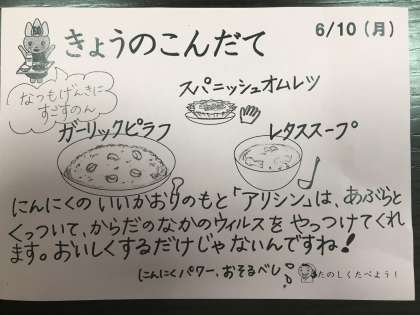 きょうのこんだて
6/10(月)
なつもげんきに
すごすのん
スパニッシュオムレツ
ガーリックピラフ
レタススープ
にんにくの いいかおりのもと「アリシン」は、あぶらと
くっついて、からだのなかのウィルスを やっつけてくれ
ます。おいしくするだけじゃないんですね!
にんにくパワー、おそるべし
たのしくたべよう!